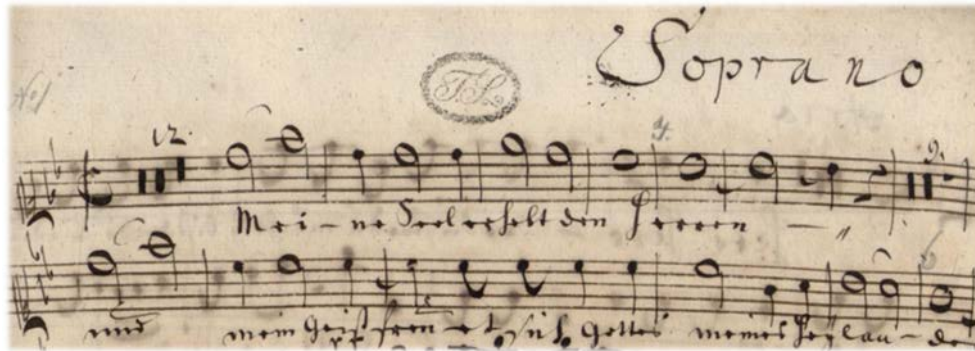 No 1
Soprano
12.
9.
Mei - ne Seel erhebt den Herren -
und mein Geist freu - et sich Gottes meines Heylan - des